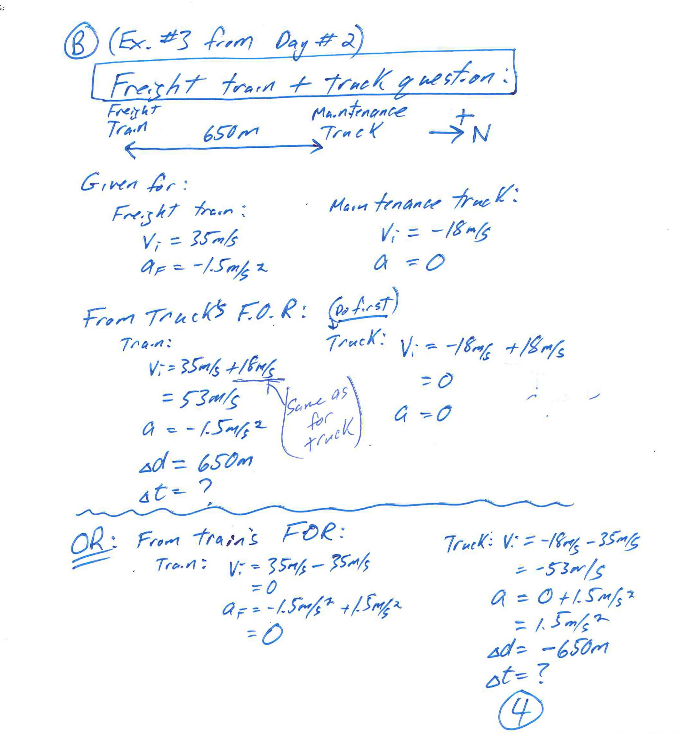 B (Ex. #3 from Day #2)
Freight train + truck question:
Freight Train
650m
Maintenance Truck
+
→ N
Given for:
Freight train:
Vi = 35m/s
aF = -1.5m/s²
Maintenance truck:
Vi = -18m/s
a = 0
From Truck's F.O.R: (Do first)
Train:
Vi = 35m/s +18m/s
= 53m/s
a = -1.5m/s²
Δd = 650m
Δt = ?
(Same as
for
truck)
Truck: Vi = -18m/s +18m/s
= 0
a = 0
OR: From train's FOR:
Train: Vi = 35m/s - 35m/s
= 0
aF = -1.5m/s² +1.5m/s²
= 0
Truck: Vi = -18m/s - 35m/s
= -53m/s
a = 0 + 1.5m/s²
= 1.5m/s²
Δd = -650m
Δt = ?
4